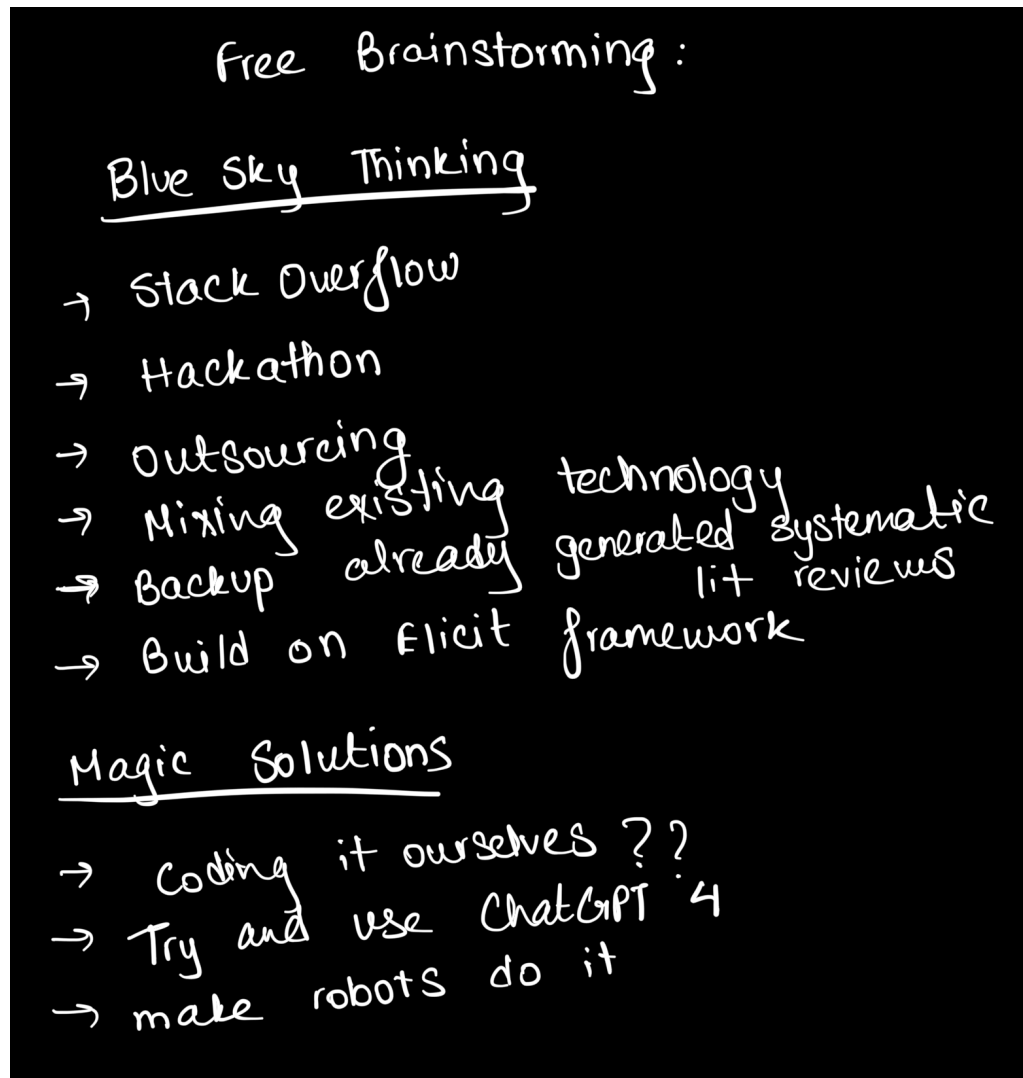 Free Brainstorming:
Blue Sky Thinking
→ Stack Overflow
→ Hackathon
→ Outsourcing
→ Mixing existing technology
→ Backup already generated systematic
lit reviews
→ Build on Elicit framework
Magic Solutions
→ Coding it ourselves ??
→ Try and use ChatGPT 4
→ make robots do it